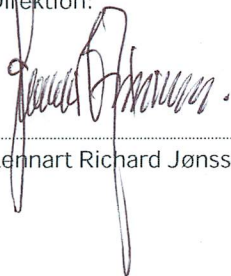 Direktion:
Lennart Richard Jønss